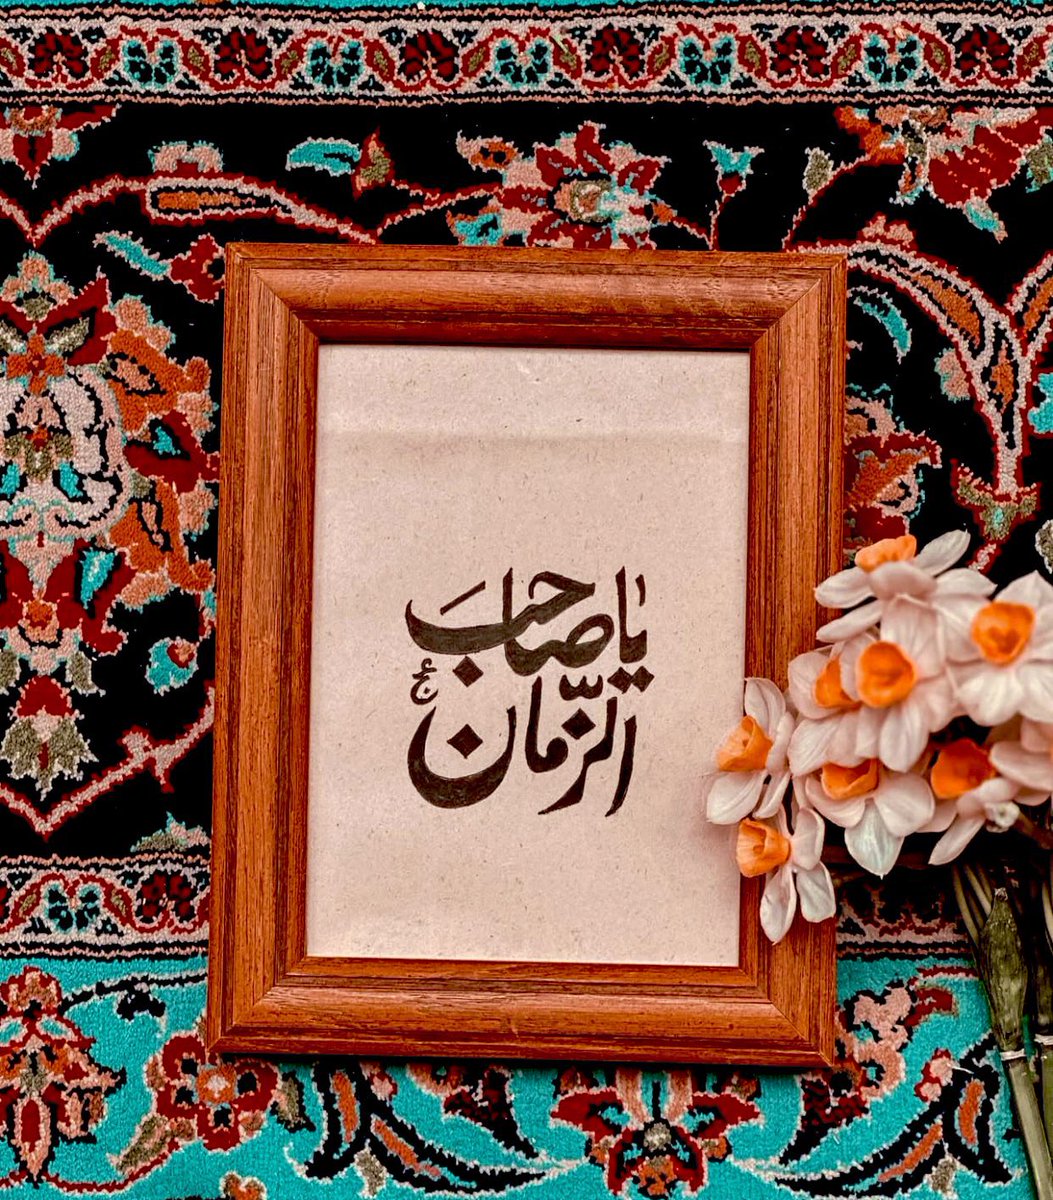 یا صاحب
الزّمان عج